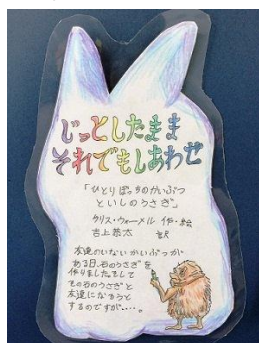 じっとしたまま
それでもしあわせ
「ひとりぼっちのかいぶつ
といしのうさぎ」
クリス・ウォーメル 作・絵
吉上恭太 訳
友達のいないかいぶつが
ある日、石のうさぎを
作りました。そして
その石のうさぎと
友達になろうと
するのですが・・・・。